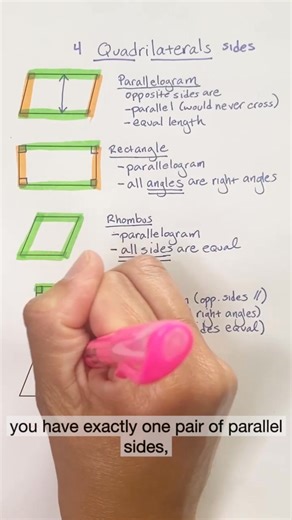 4 Quadrilaterals sides
Parallelogram
opposite sides are
-parallel (would never cross)
-equal length
Rectangle
-parallelogram
-all angles are right angles
Rhombus
-parallelogram
-all sides are equal
(opp. sides //)
right angles)
sides equal)
you have exactly one pair of parallel
sides,